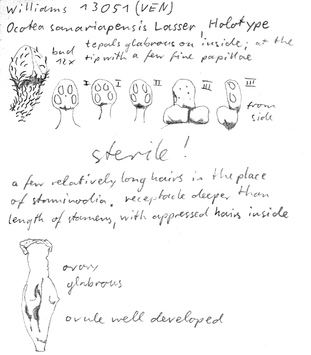 Williams 13051 (VEN)
Ocotea sanariapensis Lasser Holotype
bud
12x
tepals glabrous on inside; at the
tip with a few fine papillae
I I II III III
from
side
sterile!
a few relatively long hairs in the place
of staminodia. receptacle deeper than
length of stamens, with appressed hairs inside
ovary
glabrous
ovule well developed